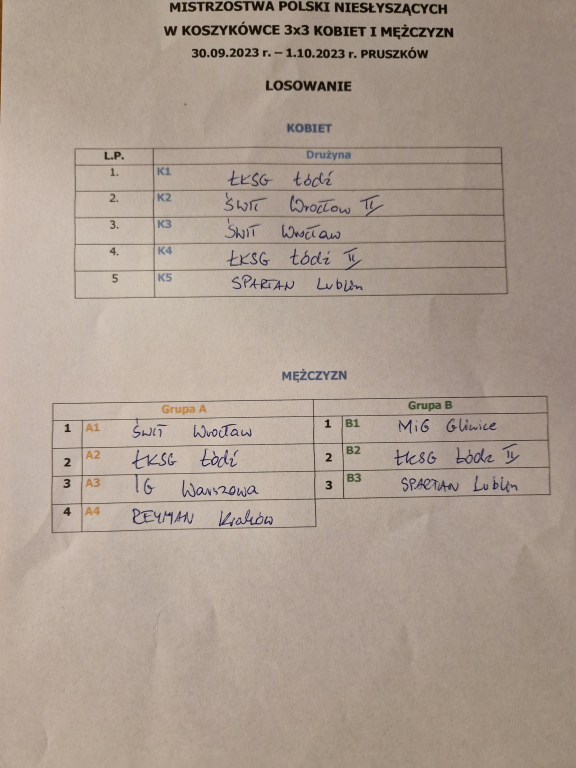 MISTRZOSTWA POLSKI NIESŁYSZĄCYCH
W KOSZYKÓWCE 3x3 KOBIET I MĘŻCZYZN
30.09.2023 r. – 1.10.2023 r. PRUSZKÓW
LOSOWANIE
KOBIET
L.P. Drużyna
1. K1 ŁKSG Łódź
2. K2 ŚWIT Wrocław II
3. K3 ŚWIT Wrocław
4. K4 ŁKSG Łódź II
5 K5 SPARTAN Lublin
MĘŻCZYZN
Grupa A Grupa B
1 A1 ŚWIT Wrocław 1 B1 MIG Gliwice
2 A2 ŁKSG Łódź 2 B2 ŁKSG Łódź II
3 A3 IG Warszawa 3 B3 SPARTAN Lublin
4 A4 REYMAN Kraków